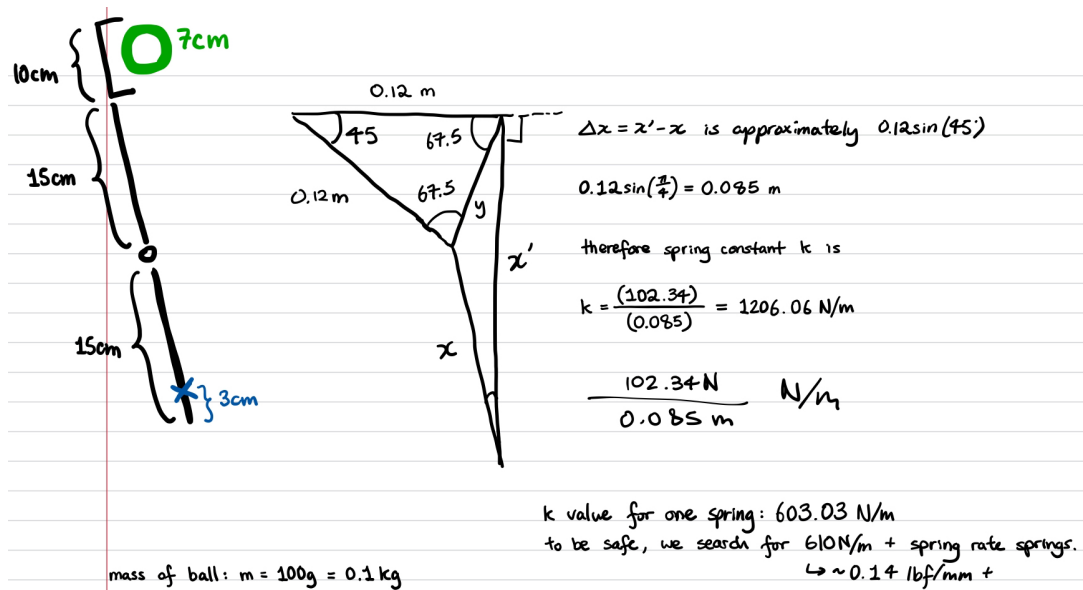 7cm
10cm
15cm
15cm
3cm
mass of ball: m = 100g = 0.1 kg
0.12 m
45
67.5
0.12m
67.5
y
x'
x
Δx = x'-x is approximately 0.12sin(45°)
0.12sin(π/4) = 0.085 m
therefore spring constant k is
k = (102.34)/(0.085) = 1206.06 N/m
102.34N / 0.085 m N/m
k value for one spring: 603.03 N/m
to be safe, we search for 610N/m + spring rate springs.
↳ ~0.14 lbf/mm +